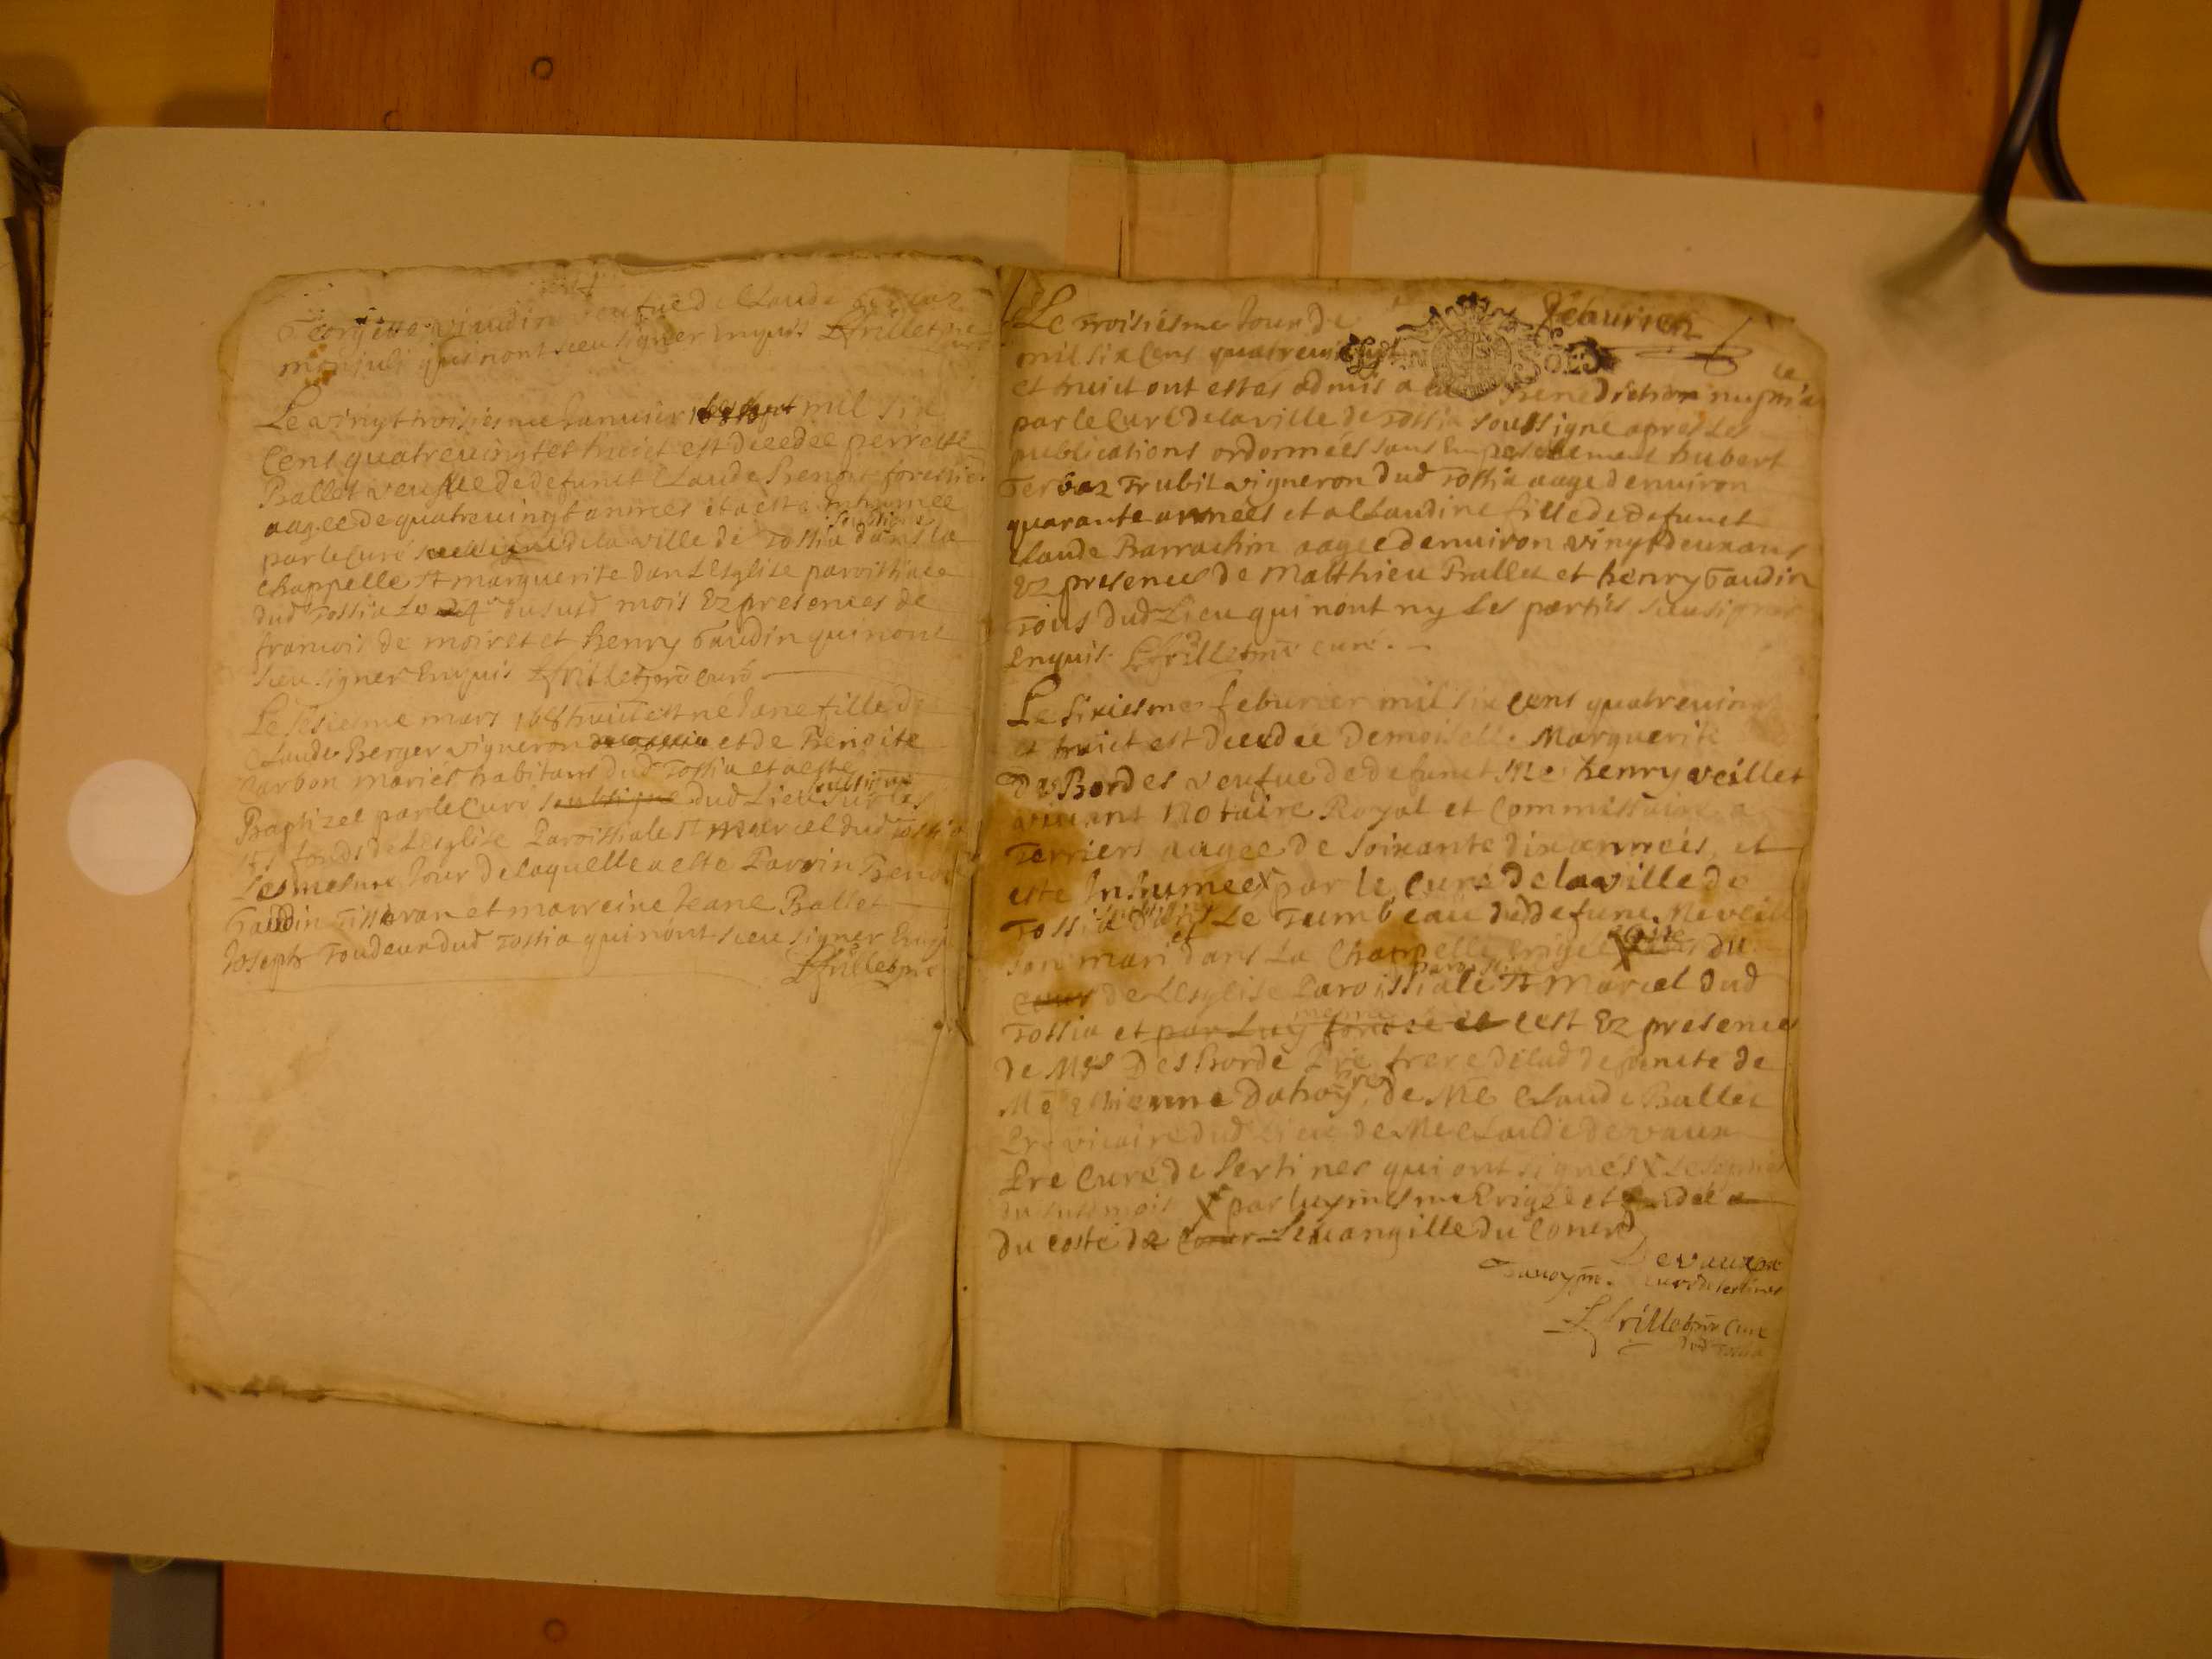 Georgette viaudin veufue de Claude
monjuli qui nont sceu signer enquis Lfrillet pre
curé
Le vingt troisiesme Januier mil six
Cens quatreuingt et huict est decedee perrette
Ballet veufue de defunct Claude Benoit forestier
aagee de quatreuingt annees et a esté Inhumee
par le Curé soubsigné de la ville de Tossia dans la
soubsigné
chappelle St marguerite dans Lesglise paroissiale
dud Tossia Le 24e du susd mois Ez presences de
francois de moiret et henry Gaudin qui nont
sceu signer Enquis Lfrillet pre Curé
Le sisiesme mars 168 huict est né Jane fille de
Claude Berger vigneron de Tossia et de Benoite
Carbon mariés habitans dud Tossia et a esté
Baptizee par le Curé soubsigné dud Lieu sur les
soubsigné
fonds de Lesglise Paroissiale St Marcel dud Tossia
Le mesme Jour de laquelle a esté Parrin Benoit
Gaudin Tisseran et marreine Jeane Ballet
Joseph Tondeur dud Tossia qui nont sceu signer Enquis
Lfrillet pre
Le Troisiesme Jour de feburier
mil six Cens quatreuingt
et huict ont estes admis a la Benediction nuptiale
par le Curé de la ville de Tossia soubsigné apres les
publications ordonnees sans Empeschement hubert
Terbaz Trubit vigneron dud Tossia aagé denuiron
quarante annees et a Claudine fille de defunct
Claude Barrachin aagee denuiron vingt deux ans
Ez presences de Matthieu Ballet et henry Gaudin
Tous dud Lieu qui nont ny les parties sceu signer
Enquis Lfrillet pre curé
Le sixiesme feburier mil six cens quatreuingt
et huict est decedee Demoiselle Marguerite
Des Bordes veufue de defunct Me henry veillet
viuant Notaire Royal et Commissaire a
Terriers aagee de soixante dix annees, et
esté Inhumee par le Curé de la ville de
Tossia soubsigné dans Le Tumbeau dud defunt Me veillet
son mari et dans La Chappelle Erigee du
Cœur de Lesglise Paroissiale St Marcel dud
Tossia et par Luy mesme fondee et cest Ez presences
de Mre Des Borde Pre frere de lad defuncte de
Me Estienne Dahoy pre de Me Claude Ballet
Pre vicaire dud Lieu de Me Claude devaux
Pre Curé de Sertines qui ont signés
du susd mois par luy mesme Erigee et fondee
du costé de Leuangille du Coeur
Devaux pre
curé de sertines
Dahoy pre
Lfrillet pre Curé
dud Tossia